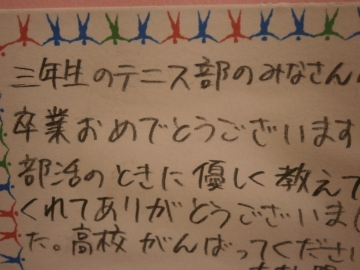 三年生のテニス部のみなさんへ
卒業おめでとうございます
部活のときに優しく教えて
くれてありがとうございまし
た。高校がんばってください